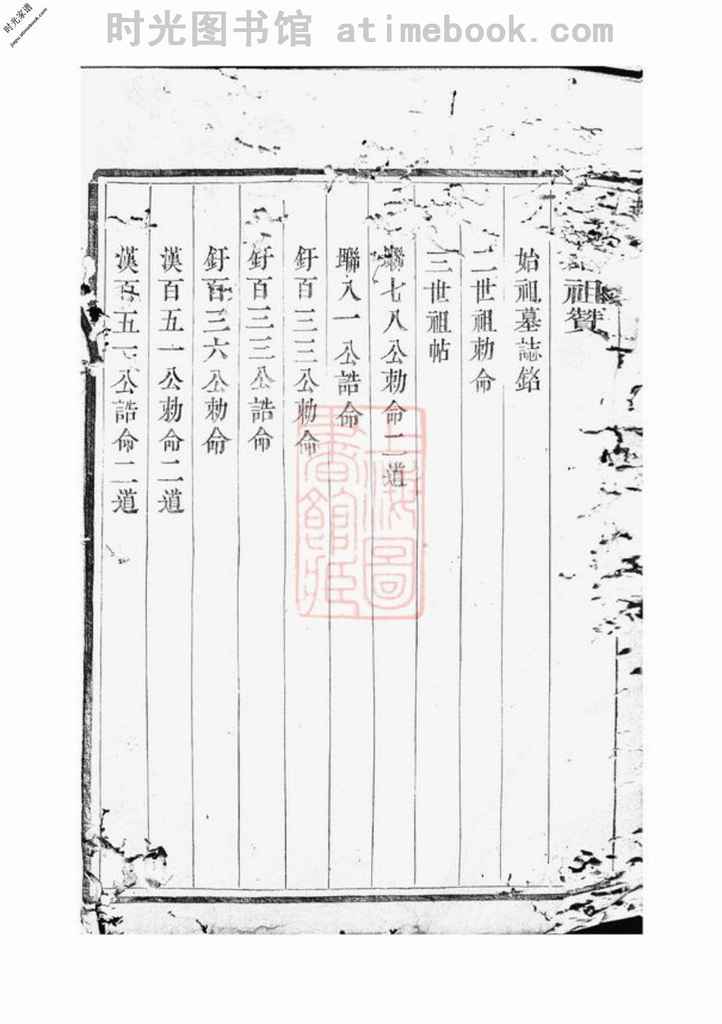 时光图书馆 atimebook.com
时光家谱
jiapu.atimebook.com
祖贊
始祖墓誌銘
二世祖勅命
三世祖帖
聯七八公勅命二道
聯八一公誥命
釪百三三公勅命
釪百三三公誥命
釪百三六公勅命
漢百五一公勅命二道
漢百五一公誥命二道
上海圖書館藏